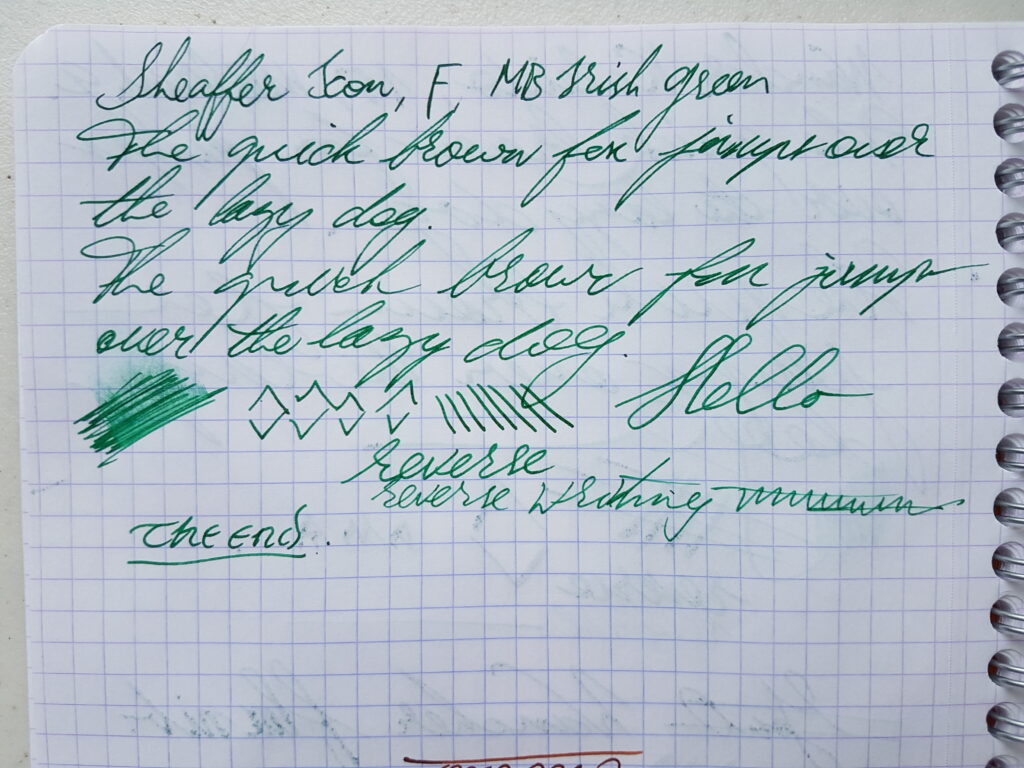 Sheaffer Icon, F, MB Irish green
The quick brown fox jumps over
the lazy dog.
The quick brown fox jumps
over the lazy dog.
Hello
reverse
reverse writing
THE END.